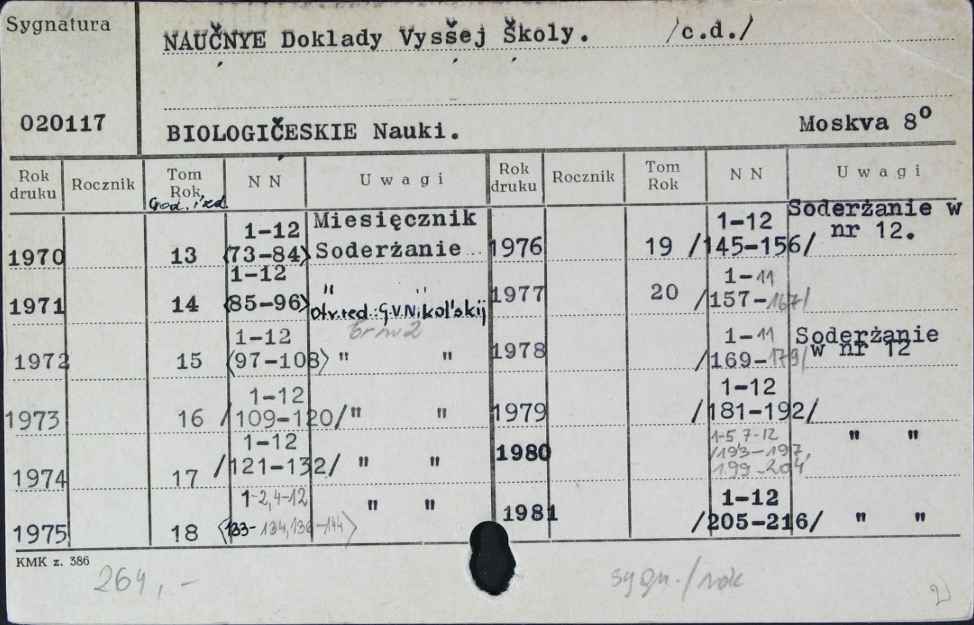 Sygnatura
NAUČNYE Doklady Vysšej Školy. /c.d./
020117
BIOLOGIČESKIE Nauki. Moskva 8°
Rok druku Rocznik Tom Rok N N Uwagi Rok druku Rocznik Tom Rok N N Uwagi
1970 13 1-12 (73-84) Miesięcznik Soderżanie
1971 14 1-12 (85-96) " " Otv.red.: G.V.Nikol'skij
1972 15 1-12 (97-108) " "
1973 16 1-12 /109-120/ " "
1974 17 1-12 /121-132/ " "
1975 18 1-2,4-12 (133-134,136-144) " "
1976 19 1-12 /145-156/ Soderżanie w nr 12.
1977 20 1-11 /157-167/
1978 1-11 /169-179/ Soderżanie w nr 12
1979 1-12 /181-192/
1980 1-5,7-12 /193-197, 199-204 " "
1981 1-12 /205-216/ " "
KMK z. 386
264,-
sygn./rok
2)